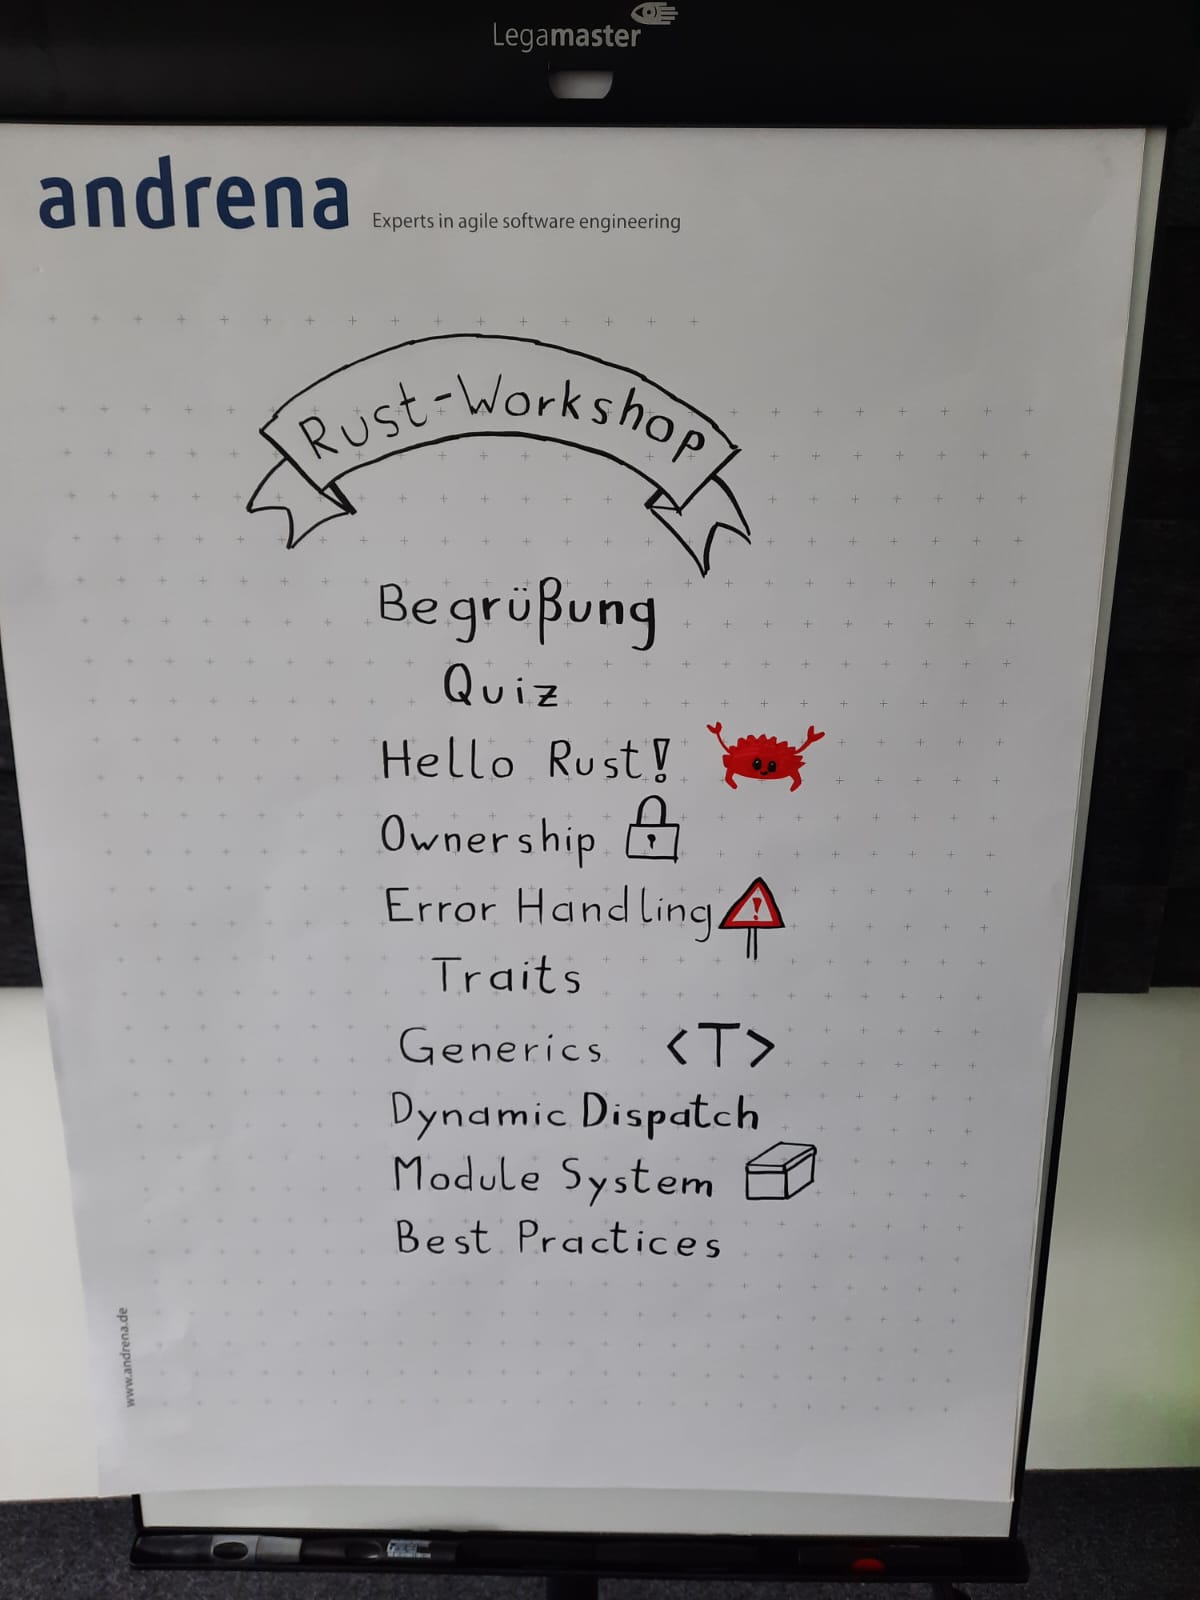 Legamaster
andrena
Experts in agile software engineering
Rust-Workshop
Begrüßung
Quiz
Hello Rust!
Ownership
Error Handling
!
Traits
Generics <T>
Dynamic Dispatch
Module System
Best Practices
www.andrena.de